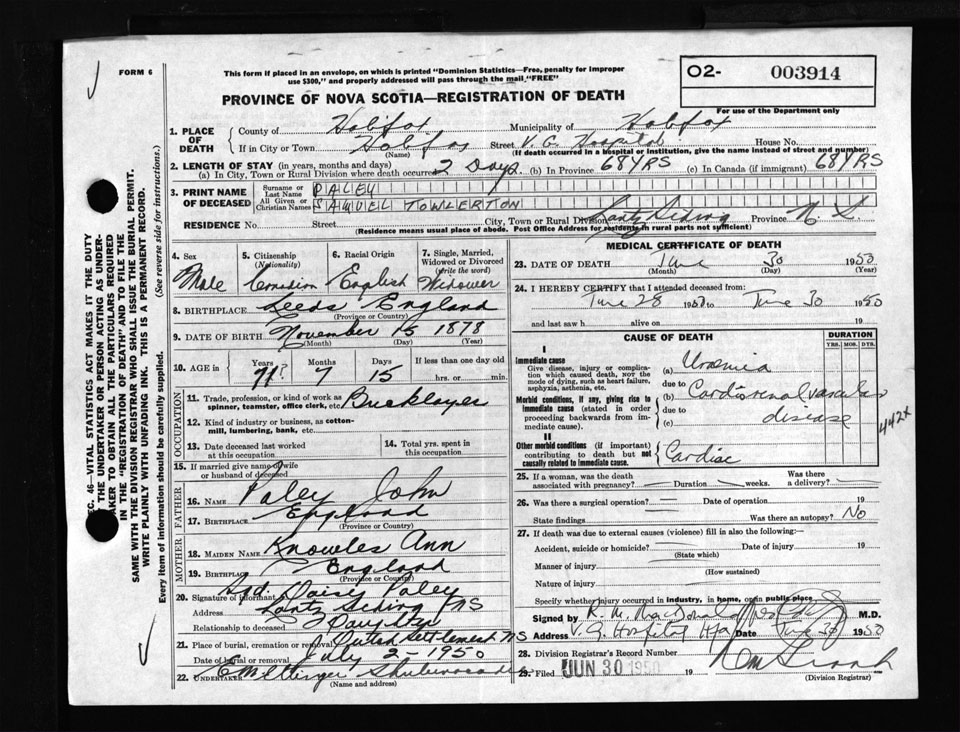 FORM 6
This form if placed in an envelope, on which is printed "Dominion Statistics—Free, penalty for improper
use $300," and properly addressed will pass through the mail "FREE"
O2- 003914
For use of the Department only
PROVINCE OF NOVA SCOTIA—REGISTRATION OF DEATH
1. PLACE OF DEATH { County of Halifax Municipality of Halifax
If in City or Town Halifax (Name) Street V. G. Hospital House No.
(If death occurred in a hospital or institution, give the name instead of street and number)
2. LENGTH OF STAY (in years, months and days)
(a) In City, Town or Rural Division where death occurred 2 Days. (b) In Province 68 YRS (c) In Canada (if immigrant) 68 YRS
3. PRINT NAME OF DECEASED { Surname or Last Name PALEY
All Given or Christian Names SAMUEL TOWLERTON
RESIDENCE No. Street City, Town or Rural Division Lantz Siding Province N S.
(Residence means usual place of abode. Post Office Address for residents in rural parts not sufficient)
4. Sex Male
5. Citizenship (Nationality) Canadian
6. Racial Origin English
7. Single, Married, Widowed or Divorced (write the word) Widower
8. BIRTHPLACE Leeds England
(Province or Country)
9. DATE OF BIRTH November 15 1878
(Month) (Day) (Year)
10. AGE in { Years 71 Months 7 Days 15 If less than one day old
hrs. or min.
OCCUPATION
11. Trade, profession, or kind of work as spinner, teamster, office clerk, etc. Bricklayer
12. Kind of industry or business, as cotton-mill, lumbering, bank, etc.
13. Date deceased last worked at this occupation
14. Total yrs. spent in this occupation
15. If married give name of wife or husband of deceased
FATHER
16. NAME Paley John
17. BIRTHPLACE England
(Province or Country)
MOTHER
18. MAIDEN NAME Knowles Ann
19. BIRTHPLACE England
(Province or Country)
20. Signature of informant Sgd. Daisy Paley
Address Lantz Siding NS
Relationship to deceased Daughter
21. Place of burial, cremation or removal Dutch Settlement NS
Date of burial or removal July 2 - 1950
22. UNDERTAKER E M Ettinger Shubenacadie
(Name and address)
MEDICAL CERTIFICATE OF DEATH
23. DATE OF DEATH June 30 1950
(Month) (Day) (Year)
24. I HEREBY CERTIFY that I attended deceased from:
June 28 1950 to June 30 1950
and last saw h alive on 19
CAUSE OF DEATH
DURATION
YRS. MOS. DYS.
I
Immediate cause
Give disease, injury or complication which caused death, not the mode of dying, such as heart failure, asphyxia, asthenia, etc.
(a) Uraemia
due to
Morbid conditions, if any, giving rise to immediate cause (stated in order proceeding backwards from immediate cause).
(b) Cardiorenal vascular
due to
(c) disease
442X
II
Other morbid conditions (if important) contributing to death but not causally related to immediate cause.
Cardiac
25. If a woman, was the death associated with pregnancy? Duration weeks. Was there a delivery?
26. Was there a surgical operation? Date of operation 19
State findings Was there an autopsy? No
27. If death was due to external causes (violence) fill in also the following:—
Accident, suicide or homicide? Date of injury 19
(State which)
Manner of injury
(How sustained)
Nature of injury
Specify whether injury occurred in industry, in home, or in public place
Signed by R. M. MacDonald M.D.
Address V. G. Hospital Hfx Date June 30 1950
28. Division Registrar's Record Number
29. Filed JUN 30 1950 19
(Division Registrar)
SEC. 46—VITAL STATISTICS ACT MAKES IT THE DUTY
OF THE UNDERTAKER OR PERSON ACTING AS UNDERTAKER TO OBTAIN ALL THE PARTICULARS REQUIRED
IN THE "REGISTRATION OF DEATH" AND TO FILE THE
SAME WITH THE DIVISION REGISTRAR WHO SHALL ISSUE THE BURIAL PERMIT.
WRITE PLAINLY WITH UNFADING INK. THIS IS A PERMANENT RECORD.
Every item of information should be carefully supplied. (See reverse side for instructions.)